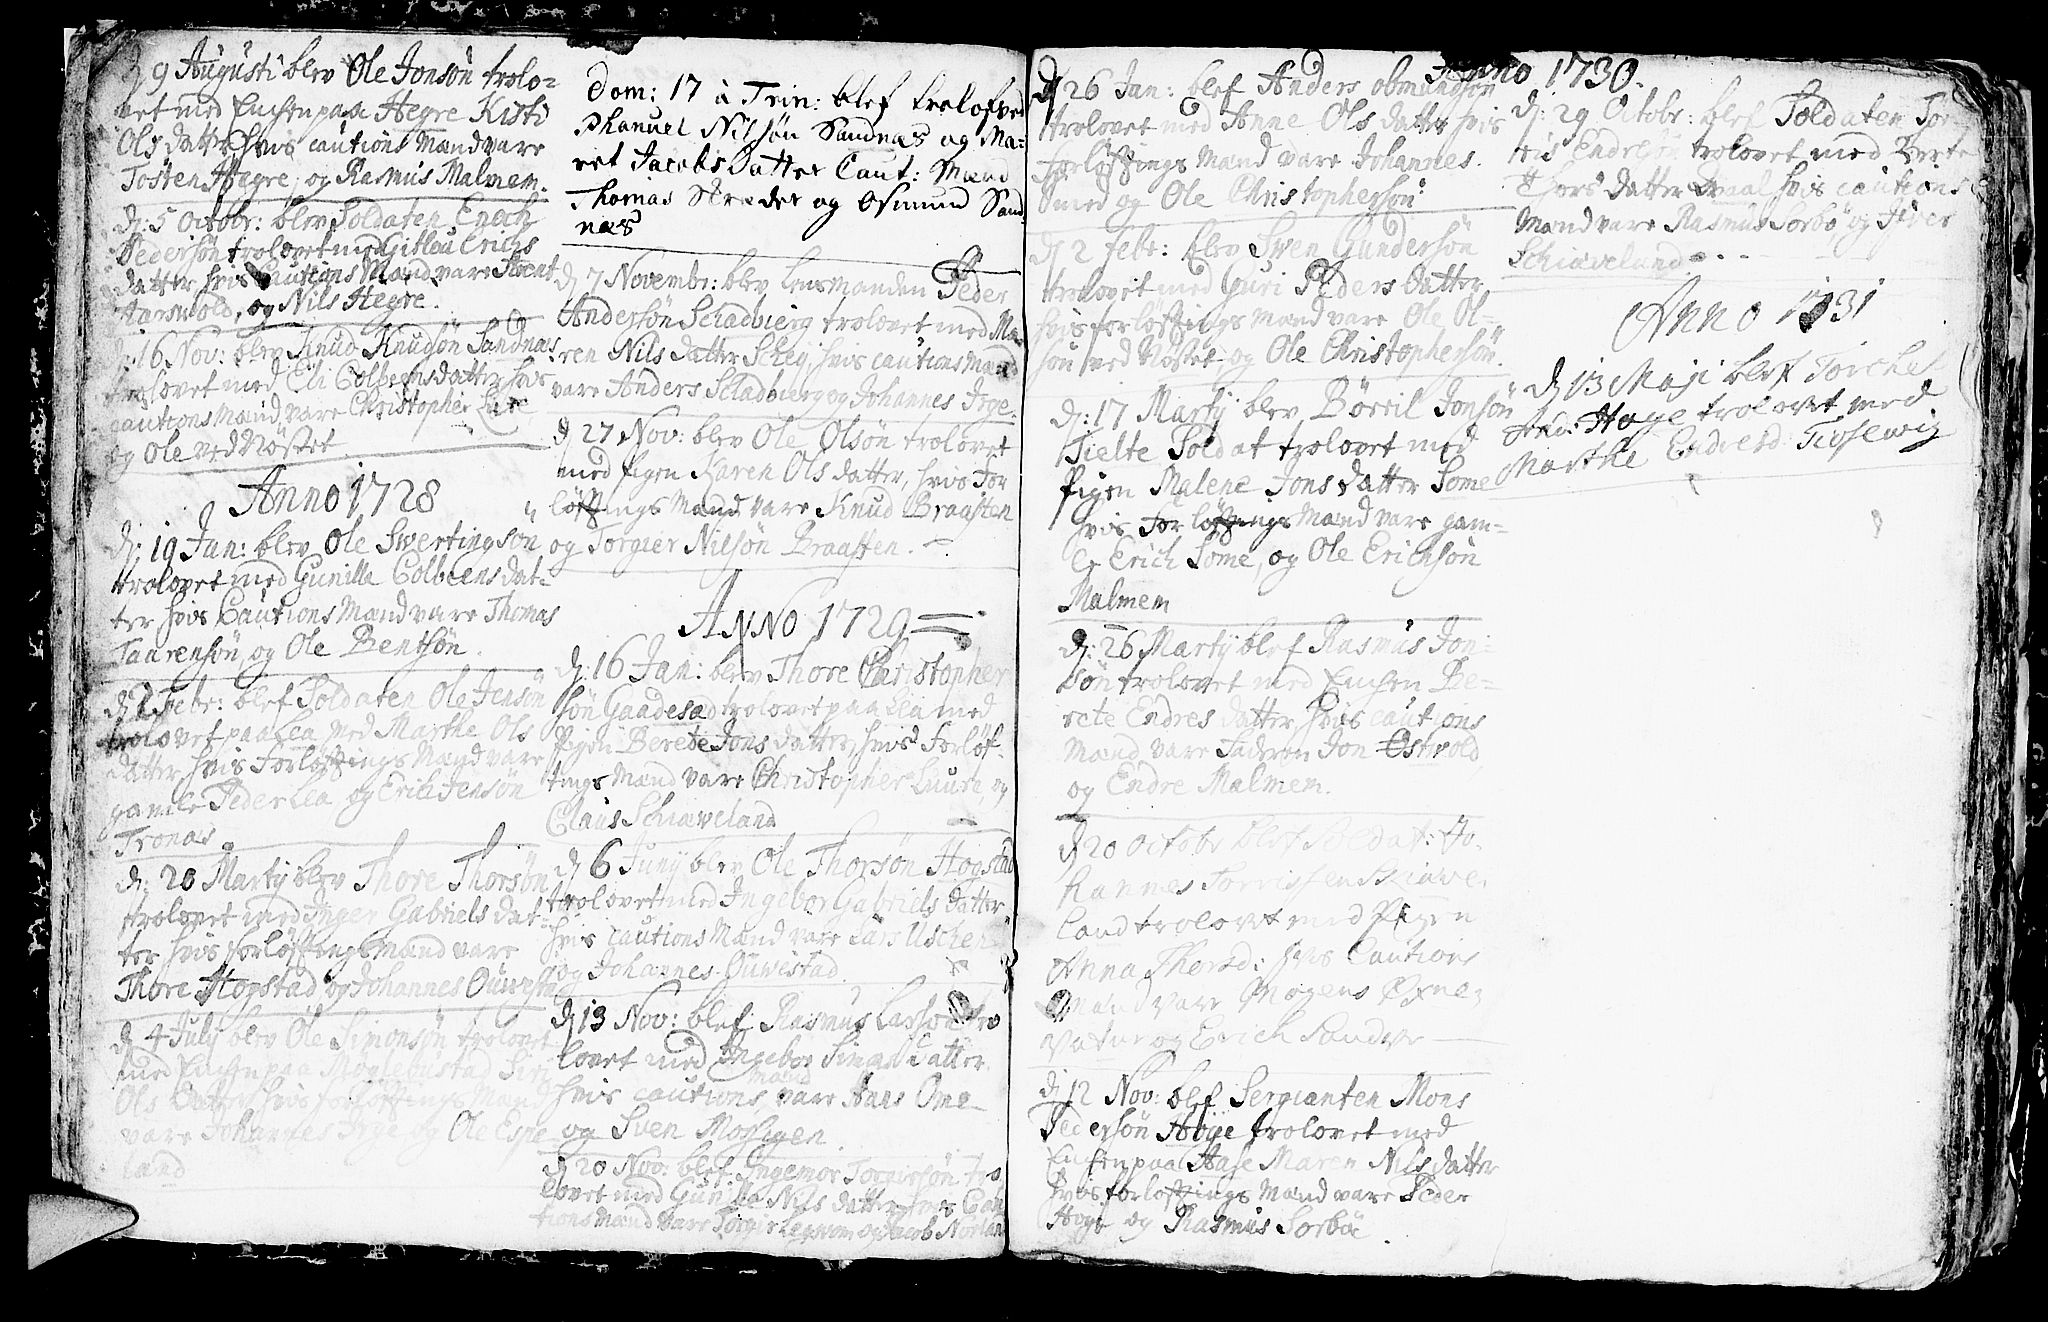 9 Augusti blev Ole Jonsøn trolo-
vet med Enchen paa Hegre Kisti
Ols datter hvis cautions Mænd vare
Tosten Hegre, og Rasmus Malmem.
d: 5 Octobr: blev Soldaten Enoch
Pedersøn trolovet med Gitlau Erichs
datter, hvis Cautions Mænd vare
Aarsvold, og Nils Hegre.
16 Nov: blev Knud Knudsøn Sandnæs
trolovet med Eli Colbensdatter, hvis
cautions Mænd vare Christopher
og Ole ved Nostet
Anno 1728
d: 19 Jan: blev Ole Swertingsøn
trolovet med Gunille Colbeens dat-
ter hvis Cautions Mænd vare Thomas
Taarensøn, og Ole Bentsøn.
d 2 Febr: blef Soldaten Ole Jensøn
trolovet paa Lea med Marthe Ols
datter, hvis Forløftings Mænd vare
gamle Peder Lea, og Erik Jensøn
Tronæs
d: 20 Martij blev Thore Thorsøn
trolovet med Inger Gabriels dat-
ter hvis forløftings mænd vare
Thore Hogstad og Johannes
d 4 July blev Ole Simonsøn trolovet
med Enchen paa Moglebustad
Ols Datter, hvis forløftings Mænd
vare Johannes Ige og Ole Espe
land
Dom: 17 à Trin: blef trolofvet
Phanuel Nilsøn Sandnæs og Ma-
ret Jacobs Datter Caut: Mænd
Thomas Stræder og Osmund Sand
næs
d 7 Novembr: blev Lensmanden Peder
Andersøn Schadbierg trolovet med Ma
ren Nils datter Scheg, hvis cautions Mænd
vare Anders Schadbierg og Johannes Ige.
d 27 Nov: blev Ole Olsøn trolovet
med Pigen Karen Ols datter, hvis For
løftings Mænd vare Knud Braasten
og Torgier Nilsøn Braasten.
Anno 1729
d: 16 Jan: blev Thore Christopher
søn Gaadesæd trolovet paa Lea med
Pigen Berete Jons datter, hvis Forløf-
tings Mænd vare Christopher Luure, og
Claus Schiæveland
d 6 Junij blev Ole Thorsøn Hogstad
trolovet med Ingebor Gabriels Datter
hvis cautions Mænd vare Lars
og Johannes Ouwestad
d 13 Nov: blef Rasmus Lassøn tro
lovet med Ingebor Simens datter
hvis cautions mænd vare Hans Ome
og Sven Mossigen
d 20 Nov: blef Ingemor Torgiersøn tro
lovet med Gunilla Nils datter hvis Cau
tions mænd vare Torgier og Jacob Norland
Anno 1730.
d 26 Jan: blef Anders obmundsøn
trolovet med Anne Ols datter hvis
Forløftings Mænd vare Johannes
Smed og Ole Christophersøn
d 2 Febr: blev Sven Gundersøn
trolovet med Guri Peders datter
hvis forløftings mænd vare Ole Ol-
søn ved Nostet, og Ole Christophersøn.
d: 17 Martij blev Børril Jonsøn
Tielte Soldat trolovet med
Pigen Malene Jons datter Some
hvis Forløftings Mænd vare gam-
le Erich Some, og Ole Erichsøn
Malmem
d: 26 Martij blef Rasmus Jon-
søn trolovet med Enchen Be-
rete Endres datter, hvis cautions
Mænd vare Fadren Jon Østvold
og Endre Malmem.
d 20 Octobr blef Soldat: Jo-
hannes Torrissen Skiæve-
land trolovet med Pigen
Anna Thorsd: hvis Cautions
Mænd vare Mogens Øxne-
vatne og Erich Sandve
d 12 Nov: blef Sergianten Mons
Pedersøn Høye trolovet med
Enchen paa Aase Maren Nils datter
hvis forløftings Mænd vare Peder
Hoye og Rasmus Sorbøe.
d: 29 Octobr: blef Soldaten Tor
ris Endresøn trolovet med Berte
Thors datter hvis cautions
Mænd vare Rasmus Sorbø, og Iver
Schiæveland.
Anno 1731
d 13 Maji blef Torchel
And: Høye trolovet med
Marthe Endresd: